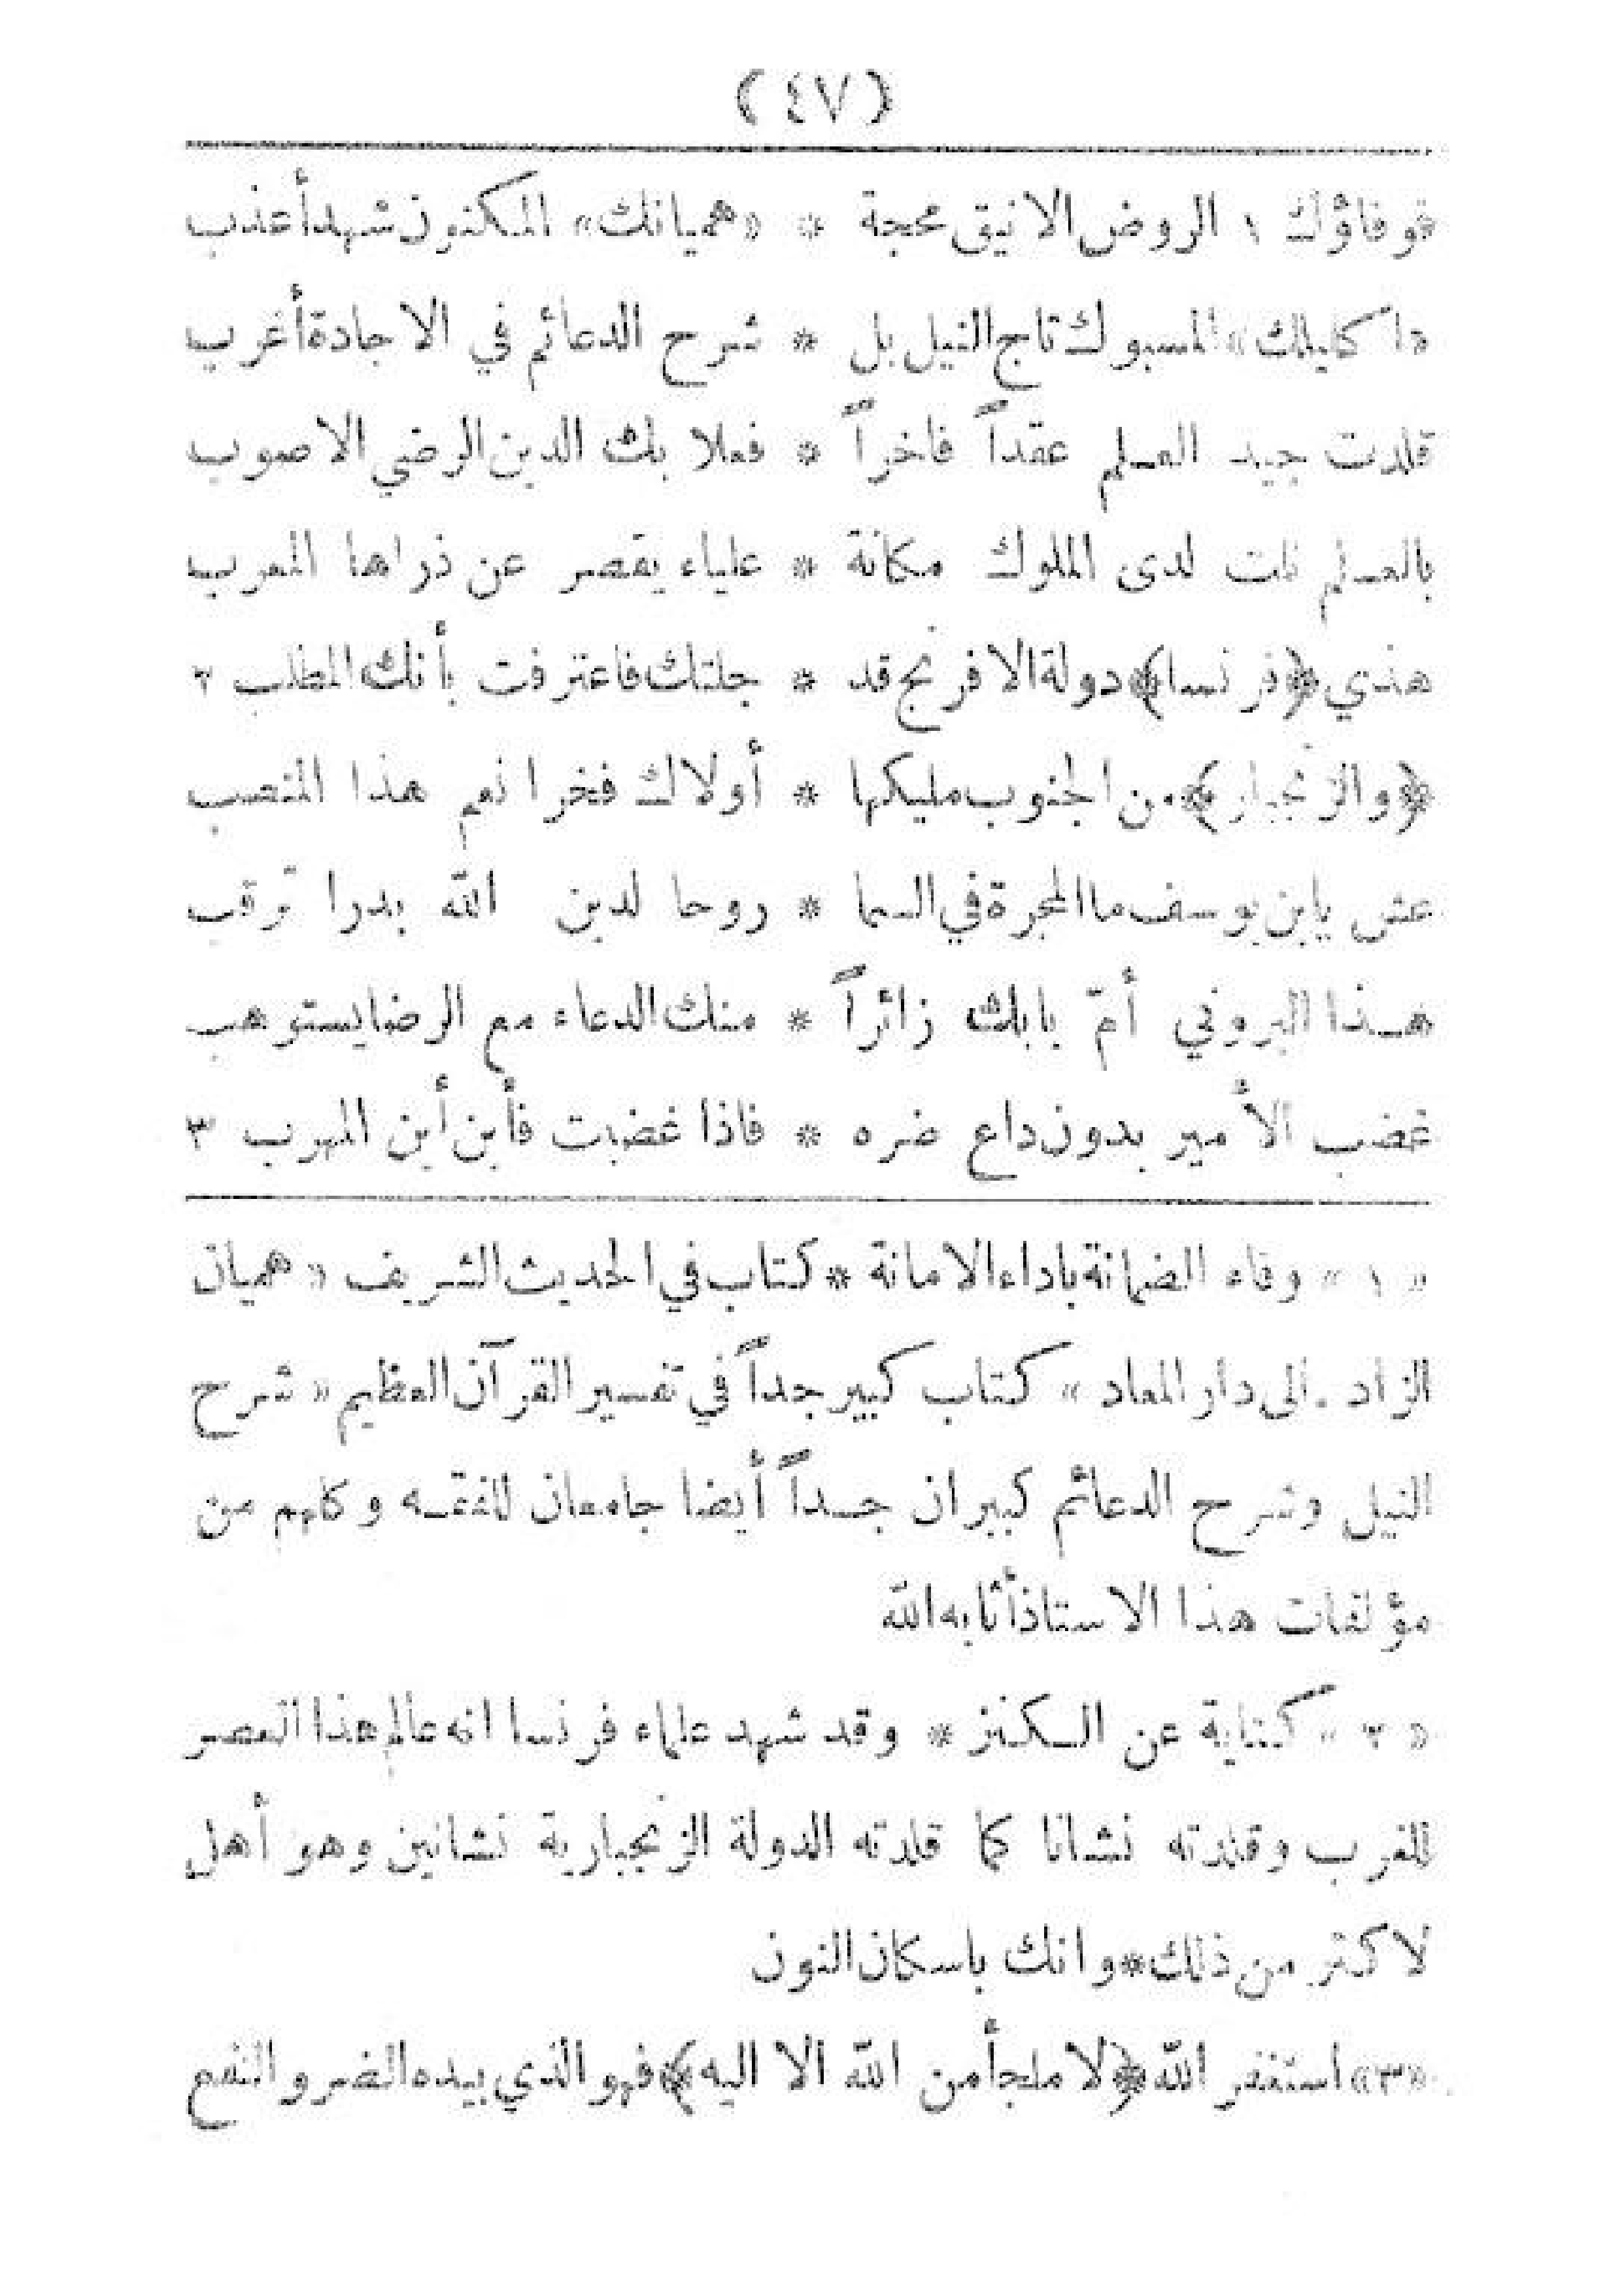 (٤٧)
«وفاؤك ١ الروض الانيق محجة * «هميانك» المكنون شهد أعذب
«اكليلك» المسبوك تاج النيل بل * شرح الدعائم في الاجادة أغرب
قلدت جيد العلم عقداً فاخراً * فعلا بك الدين الرضي الاصوب
بالعلم نلت لدى الملوك مكانة * علياء يقصر عن ذراها المعرب
هذي ﴿فرنسا﴾ دولة الافرنج قد * جلتك فاعترفت بأنك المطلب ٢
﴿والزنجبار﴾ من الجنوب مليكها * أولاك فخرا نعم هذا المنصب
عش يابن يوسف ما المجرة في السما * روحا لدين الله بدرا ترقب
هذا البروني أمّ بابك زائراً * منك الدعاء مع الرضا يستوهب
غضب الأمير بدون داع ضره * فاذا غضبت فأين أين المهرب ٣
« ١ » وفاء الضمانة باداء الامانة * كتاب في الحديث الشريف « هميان
الزاد . الى دار المعاد » كتاب كبير جداً في تفسير القرآن العظيم « شرح
النيل وشرح الدعائم كبيران جداً أيضا جامعان للفقه وكلهم من
مؤلفات هذا الاستاذ أثابه الله
« ٢ » كناية عن الكنز * وقد شهد علماء فرنسا انه عالم هذا العصر
للغرب وقلدته نشانا كما قلدته الدولة الزنجبارية نشانين وهو أهل
لاكثر من ذلك * وانك باسكان النون
«٣» استغفر الله ﴿لا ملجأ من الله الا اليه﴾ فهو الذي بيده الضر والنفع